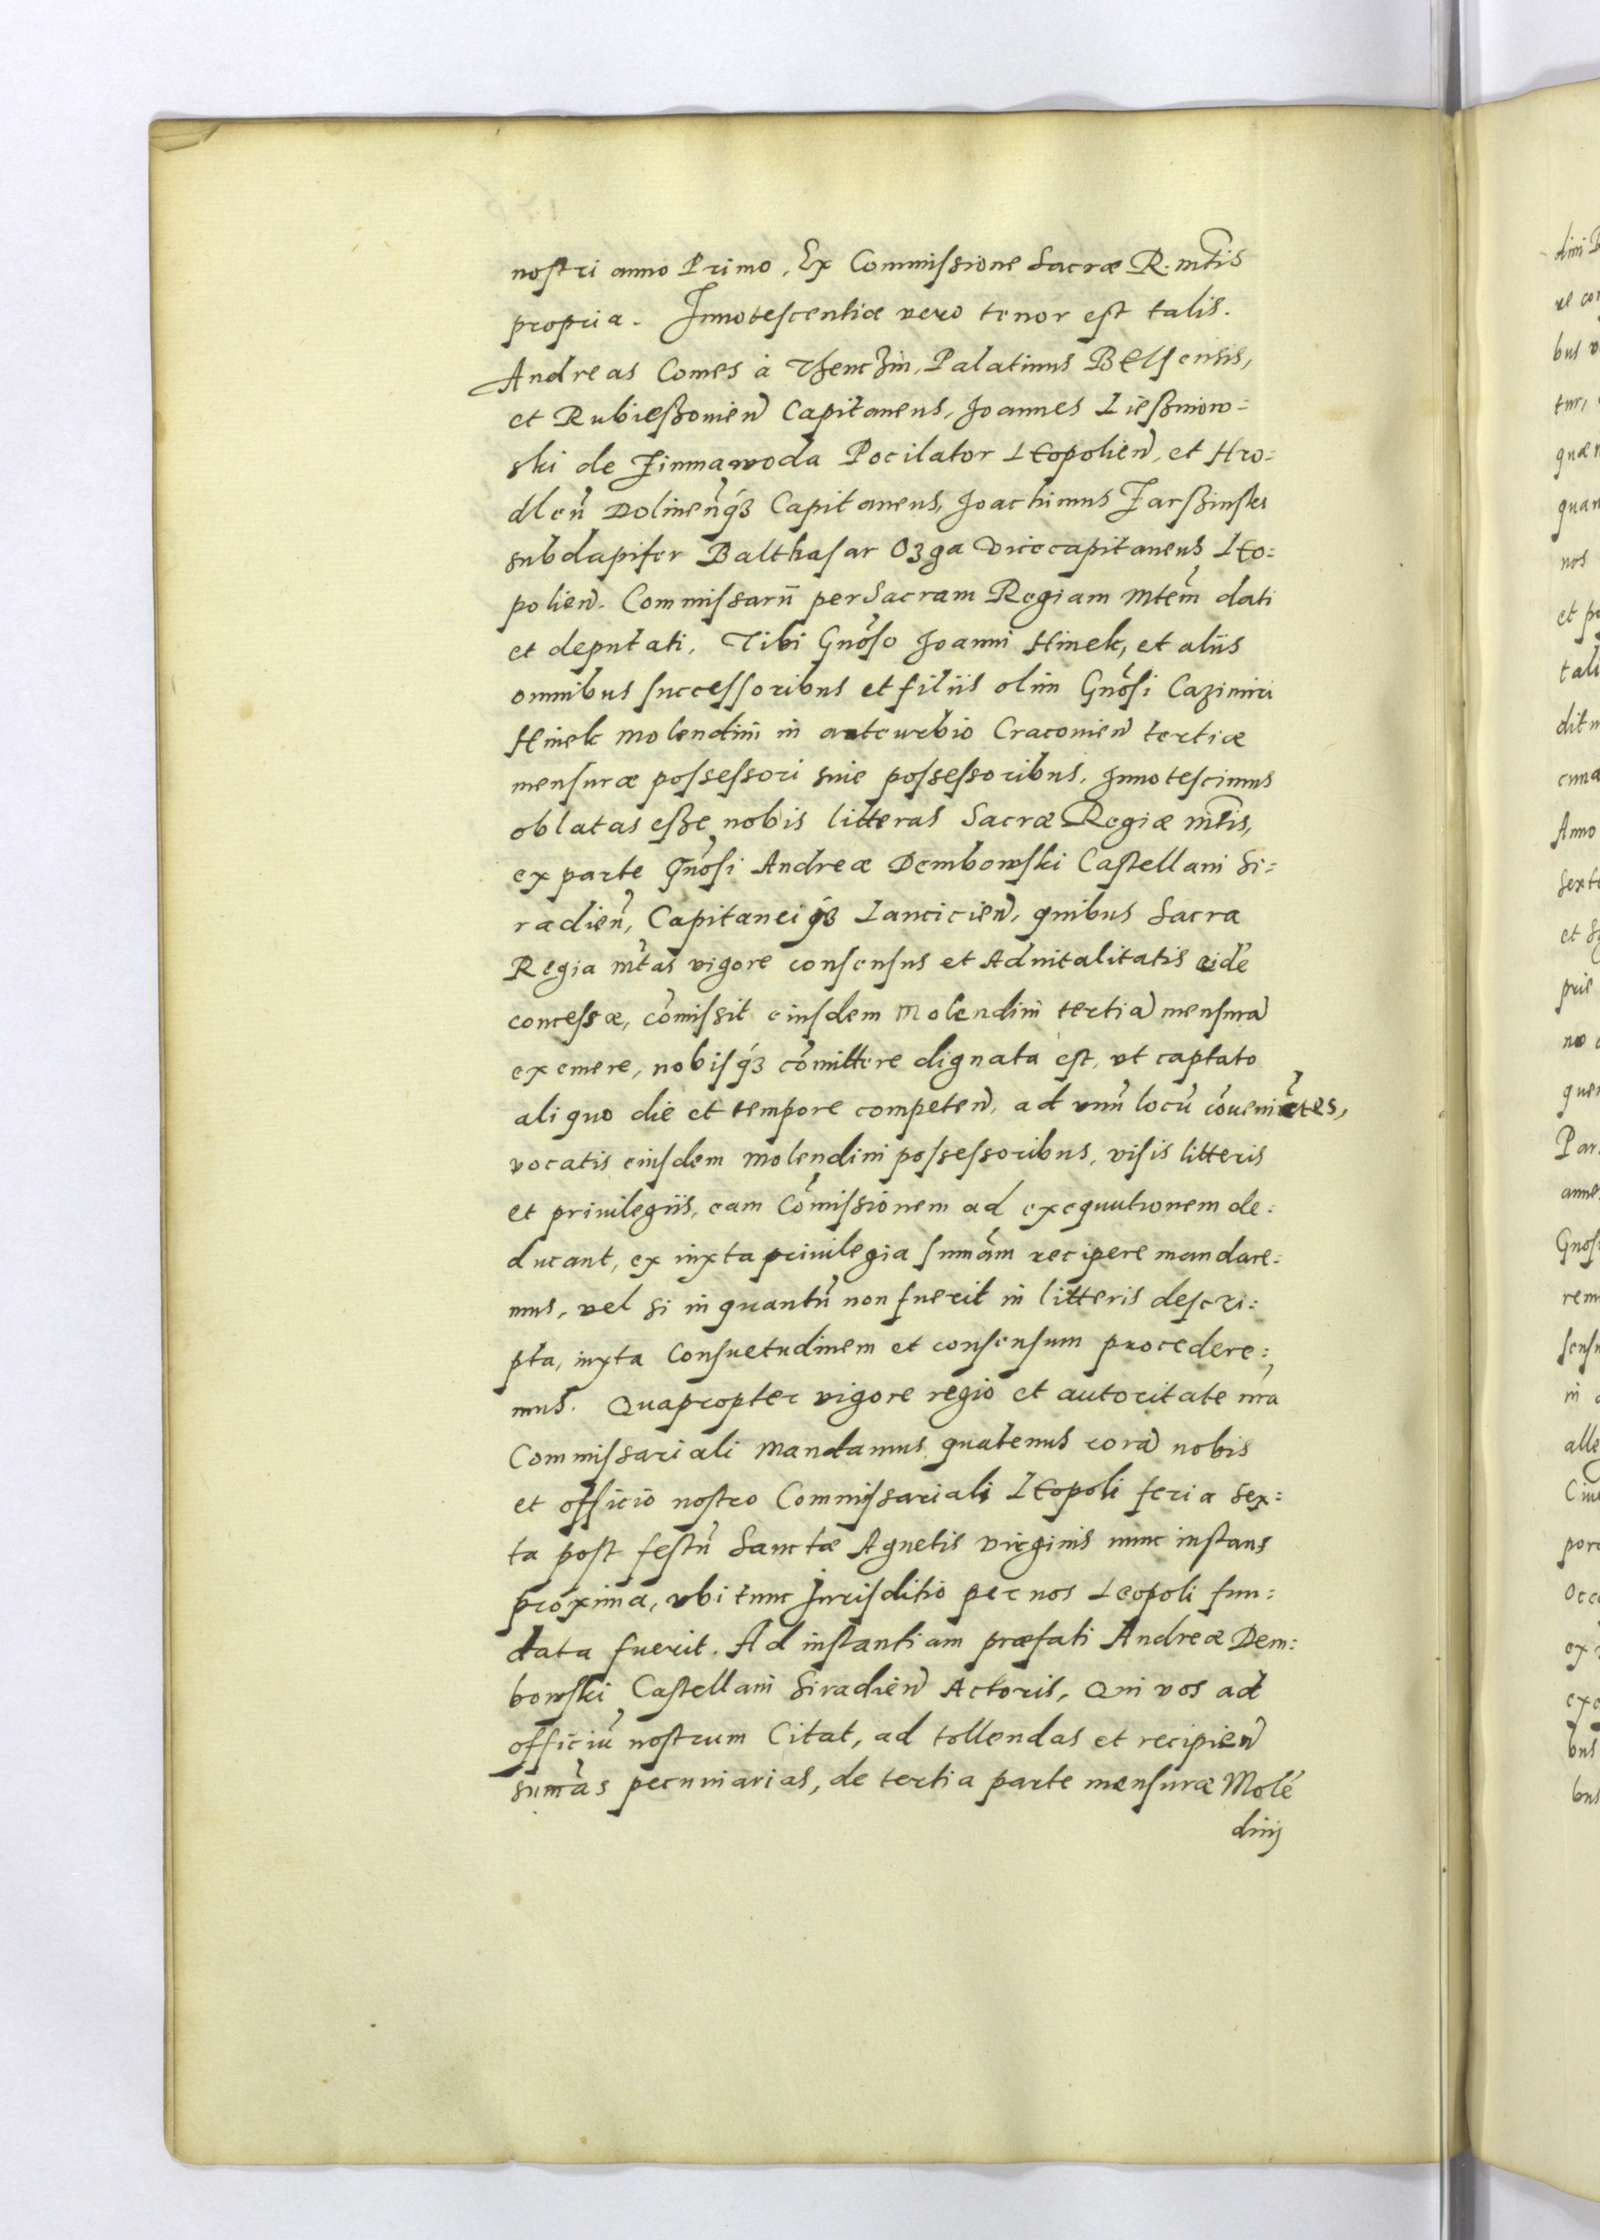 nostri anno Primo, Ex Commissione Sacræ R. mtis
propria. Innotescentiæ vero tenor est talis.
Andreas Comes à Thenczin, Palatinus Belsensis,
et Rubieszouien Capitaneus, Joannes Lieszniow=
ski de Zimnawoda Pocilator Leopolien, et Hro=
dlen Dolinenq3 Capitaneus, Joachimus Jarszinski
subdapifer Balthasar Ozga Vicecapitaneus Leo=
polien. Commissarii per Sacram Regiam Mtem dati
et deputati, Tibi Gnoso Joanni Hinek, et aliis
omnibus successoribus et filiis olim Gnosi Cazimiri
Hinek molendini in anteurbio Craconien tertiæ
mensuræ possessori siue possessoribus, Innotescimus
oblatas esse nobis litteras Sacræ Regiæ mtis,
ex parte Gnosi Andreæ Dembowski Castellani Si=
radien, Capitaneiq3 Lancicien, quibus Sacra
Regia mtas vigore consensus et Aduitalitatis eidē
concessæ, cōmissit eiusdem Molendini tertiā mensurā
exemere, nobisq3 cōmittere dignata est, vt captato
aliquo die et tempore competen, ad vnū locū cōueniētes,
vocatis eiusdem molendini possessoribus, visis litteris
et priuilegiis, eam Cōmissionem ad exequutionem de=
ducant, ex iuxta priuilegia sumām recipere mandare=
mus, vel si in quantū non fuerit in litteris descri=
pta, iuxta Consuetudinem et consensum procedere=
mus. Quapropter vigore regio et autoritate nrā
Commissariali mandamus quatenus corā nobis
et officio nostro Commissariali Leopoli feria sex=
ta post festū Sanctæ Agnetis Virginis nunc instans
proxima, vbi tunc Jurisditio per nos Leopoli fun=
data fuerit. Ad instantiam præfati Andreæ Dem=
bowski Castellani Siradien Actoris, Qui vos ad
officiū nostrum Citat, ad tollendas et recipien
sumās pecuniarias, de tertia parte mensuræ Molē
dinij